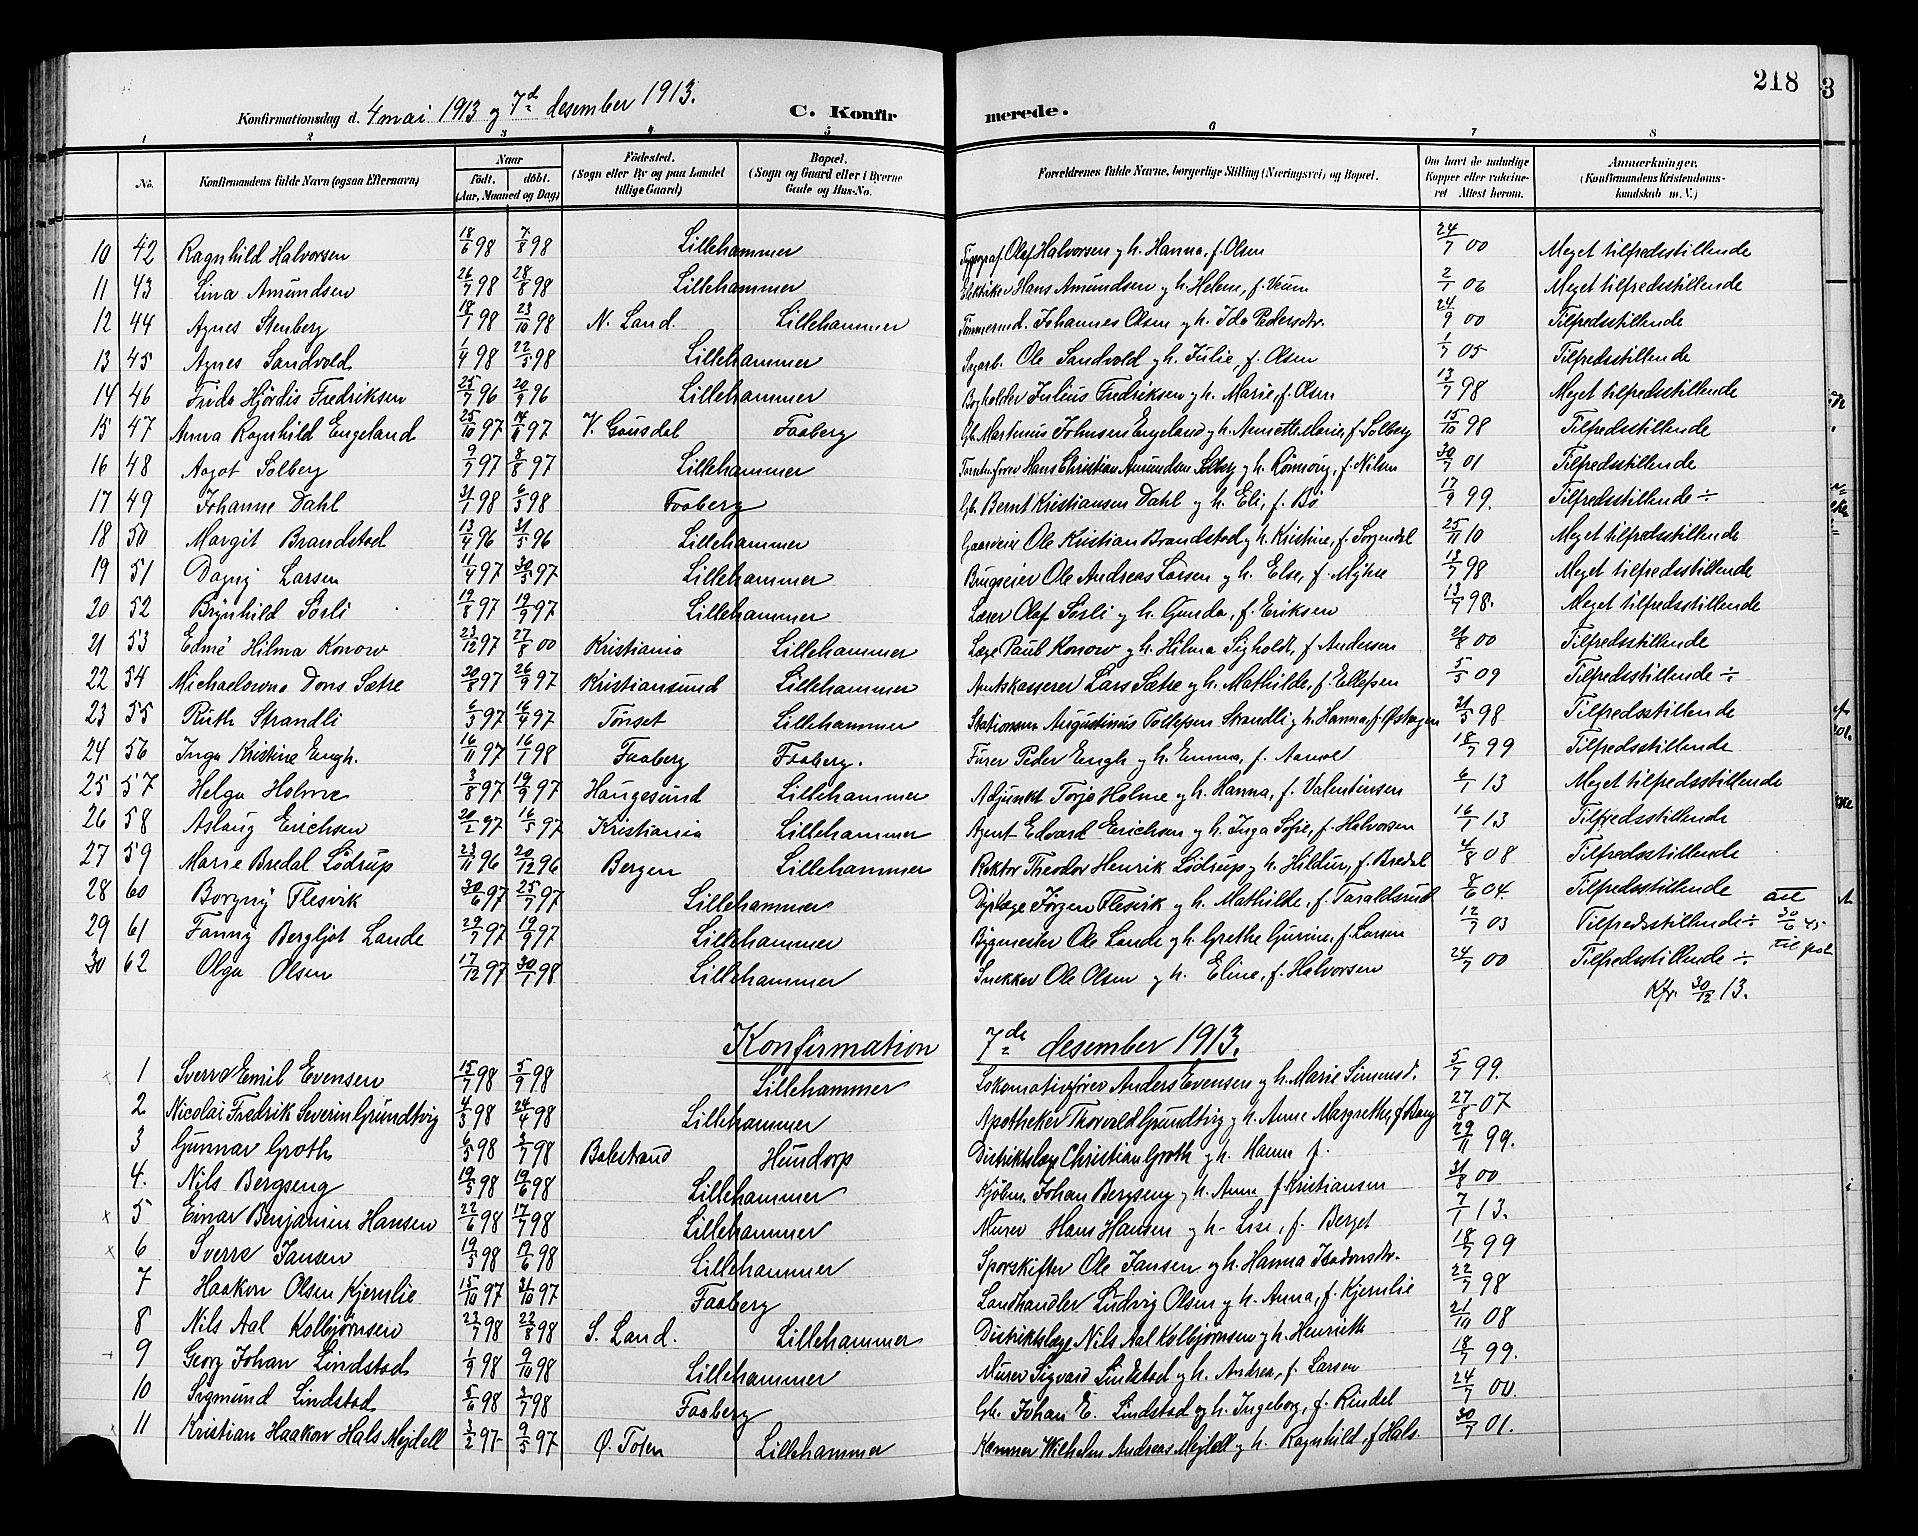 218
Konfirmationsdag d. 4 mai 1913 og 7de desember 1913. C. Konfirmerede.
1 2 3 4 5 6 7 8
No. Konfirmandens fulde Navn (ogsaa Efternavn) Naar Födt. döbt. (Aar, Maaned og Dag) Födested. (Sogn eller By og paa Landet tillige Gaard) Bopæl. (Sogn og Gaard eller i Byerne Gade og Hus-No. Forældrenes fulde Navne, borgerlige Stilling (Næringsvei) og Bopæl. Om havt de naturlige Kopper eller vakcineret Attest herom. Anmærkninger. (Konfirmandens Kristendomskundskab m. V.)
10 42 Ragnhild Halvorsen 18/6 98 7/8 98 Lillehammer Typograf Olaf Halvorsen og h. Hanna, f. Olsen 24/7 00 Meget tilfredsstillende
11 43 Lina Amundsen 26/7 98 28/8 98 Lillehammer Hans Amundsen og h. Helene, f. Veum 2/1 06 Meget tilfredsstillende
12 44 Agnes Stenberg 18/7 98 23/10 98 N. Land. Lillehammer Tømmermd. Johannes Olsen og h. Ida Pedersdtr. 24/9 00 Tilfredsstillende
13 45 Agnes Sandvold 1/4 98 22/5 98 Lillehammer Ole Sandvold og h. Julie, f. Olsen 1/7 05 Tilfredsstillende
14 46 Frida Hjördis Fredriksen 25/7 96 20/9 96 Lillehammer Bogholder Julius Fredriksen og h. Marie, f. Olsen 13/7 98 Meget tilfredsstillende
15 47 Anna Ragnhild Engeland 25/10 97 14/9 97 V. Gausdal Faaberg Gb. Martinus Johnsen Engeland og h. Annette Marie, f. Solberg 15/10 98 Tilfredsstillende
16 48 Aagot Solberg 9/7 97 8/8 97 Lillehammer Hans Christian Amundsen Solberg og h. f. Nilsen 30/7 01 Tilfredsstillende
17 49 Johanne Dahl 31/1 98 98 Faaberg Gb. Bernt Kristiansen Dahl og h. Eli, f. Bö 17/9 99. Tilfredsstillende ÷
18 50 Margit Brandstad 13/4 96 31/5 96 Lillehammer Gaardeier Ole Kristian Brandstad og h. Kristine, f. Sorgendal 25/11 10 Meget tilfredsstillende
19 51 Dagny Larsen 11/4 97 30/5 97 Lillehammer Brugseier Ole Andreas Larsen og h. Else, f. Myhre 13/7 98 Meget tilfredsstillende
20 52 Brynhild Sörli 19/8 97 19/9 97 Lillehammer Lærer Olaf Sörli og h. Gunda, f. Eriksen 13/7 98. Meget tilfredsstillende
21 53 Edmé Hilma Konow 23/12 97 27/8 00 Kristiania Lillehammer Læge Paul Konow og h. Hilma Sigholdt, f. Andersen 21/8 00 Tilfredsstillende
22 54 Michaelowna Dons Sætre 20/8 97 26/9 97 Kristiansund Lillehammer Amtskasserer Lars Sætre og h. Mathilde, f. Ellefsen 5/5 09 Tilfredsstillende ÷
23 55 Ruth Strandli 6/3 97 16/4 97 Tönset Lillehammer Stationsm. Augustinus Tollefsen Strandli og h. Hanna, f. Østhagen 21/5 98 Tilfredsstillende
24 56 Inga Kristine Engh. 16/11 97 16/1 98 Faaberg Faaberg. Furer Peder Engh og h. Emma, f. Aamot 18/7 99 Tilfredsstillende
25 57 Helga Holme 3/8 97 19/9 97 Haugesund Lillehammer Adjunkt Torje Holme og h. Hanna, f. Valentinsen 6/1 13 Meget tilfredsstillende
26 58 Aslaug Erichsen 20/2 97 16/5 97 Kristiania Lillehammer Agent Edvard Erichsen og h. Inga Sofie, f. Halvorsen 16/1 13 Tilfredsstillende
27 59 Marie Bredal Lödrup 23/11 96 20/12 96 Bergen Lillehammer Rektor Theodor Henrik Lödrup og h. Hildur, f. Bredal 4/8 08 Tilfredsstillende
28 60 Borgny Flesvik 30/6 97 25/7 97 Lillehammer Dyrlæge Jörgen Flesvik og h. Mathilde, f. Taraldsrud 8/6 04. Tilfredsstillende
29 61 Fanny Bergljot Lande 29/7 97 19/9 97 Lillehammer Bygmester Ole Lande og h. Grethe Gurine, f. Larsen 12/7 03 Tilfredsstillende ÷ att 30/6 45
30 62 Olga Olsen 17/12 97 30/1 98 Lillehammer Snekker Ole Olsen og h. Eline, f. Halvorsen 24/7 00 Tilfredsstillende ÷
Kfr. 30/12 13.
Konfirmation 7de desember 1913.
1 Sverre Emil Evensen 15/7 98 5/9 98 Lillehammer Lokomotivförer Anders Evensen og h. Marie Simensd. 5/7 99.
2 Nicolai Fredrik Severin Grundtvig 4/3 98 24/4 98 Lillehammer Apotheker Thorvald Grundtvig og h. Anne Margrethe, f. Bang 27/8 07
3 Gunnar Groth 6/5 98 3/7 98 Balestrand Hundorp Distriktslæge Christian Groth og h. Hanna f. 29/11 99.
4. Nils Bergseng 19/3 98 19/6 98 Lillehammer Kjöbm. Johan Bergseng og h. Anne f. Kristiansen 31/8 00
x 5 Einar Benjamin Hansen 22/6 98 17/7 98 Lillehammer Murer Hans Hansen og h. Lise, f. Berget 7/1 13.
x 6 Sverre Jansen 19/5 98 19/6 98 Lillehammer Sporskifter Ole Jansen og h. Hanna Isdorsdtr. 18/7 99
7 Haakon Olsen Kjernlie 15/10 97 31/10 97 Faaberg Landhandler Ludvig Olsen og h. Anna, f. Kjernlie 22/7 98
8 Nils Aal Kolbjørnsen 23/7 98 22/8 98 S. Land. Lillehammer Distriktslæge Nils Aal Kolbjørnsen og h. Henriette 21/10 08
9 Georg Johan Lindstad 1/9 98 9/10 98 Lillehammer Murer Sigvard Lindstad og h. Andrea, f. Larsen 18/7 99.
10 Sigmund Lindstad 5/6 98 3/7 98 Faaberg Gb. Johan E. Lindstad og h. Ingeborg, f. Rindal 24/7 00.
x 11 Kristian Haakon Hals Mejdell 3/2 97 9/5 97 Ø. Toten Lillehammer Wilhelm Andreas Mejdell og h. Ragnhild, f. Hals. 30/7 01.